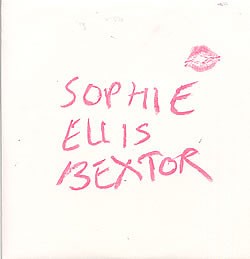 SOPHIE
ELLIS
BEXTOR